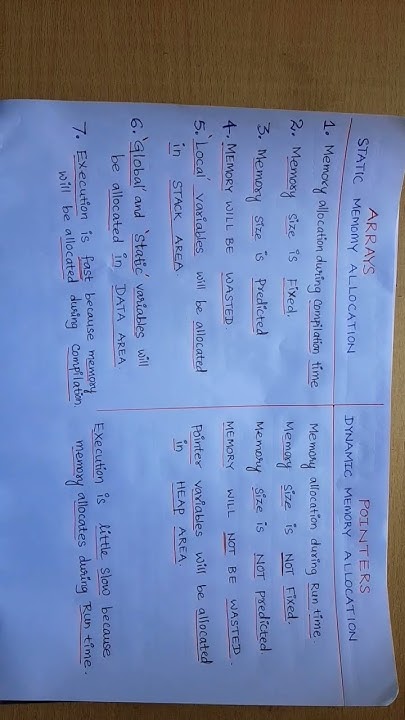 ARRAYS
STATIC MEMOMY ALLOCATION
1. Memory allocation during Compilation time
2. Memory size is Fixed.
3. Memory size is Predicted
4. MEMORY WILL BE WASTED.
5. 'Local' variables will be allocated
in STACK AREA.
6. 'Global' and 'static' variables will
be allocated in DATA AREA.
7. Execution is fast because memory
will be allocated during Compilation.
POINTERS
DYNAMIC MEMORY ALLOCATION
Memory allocation during Run time.
Memory size is NOT Fixed.
Memory size is NOT Predicted.
MEMORY WILL NOT BE WASTED.
Pointer variables will be allocated
in HEAP AREA.
Execution is little slow because
memory allocates during Run time.